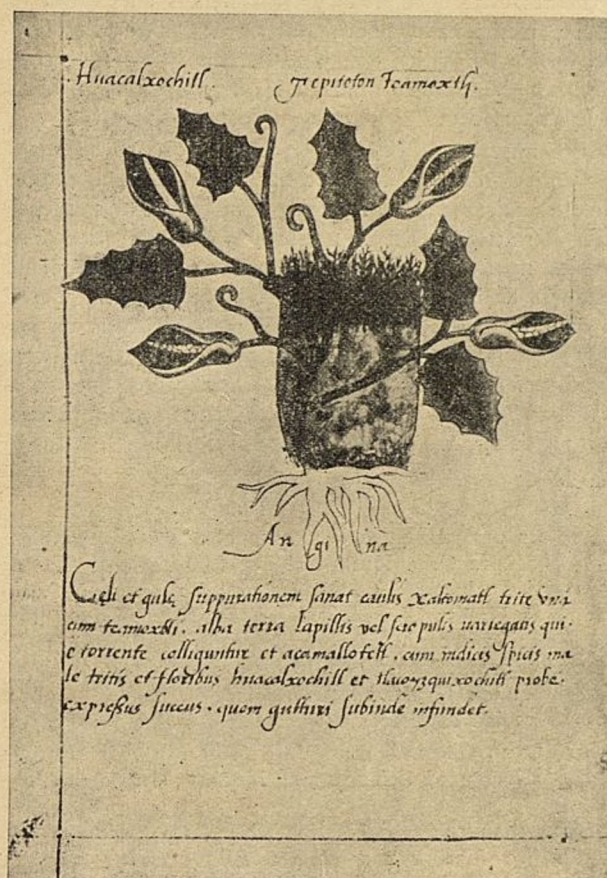 Huacalxochitl. Tepiteton Teamoxtli.
An gi na
et gulę suppurationem sanat caulis xaltomatl trite vna
cum teamoxtli, alba terra lapillis vel scrupulis uariegatis qui
e torrente colliguntur et acamallotetl, cum indicis spicis ma
le tritis et floribus huacalxochitl et probe
expressus succus, quem gutturi subinde infundet.